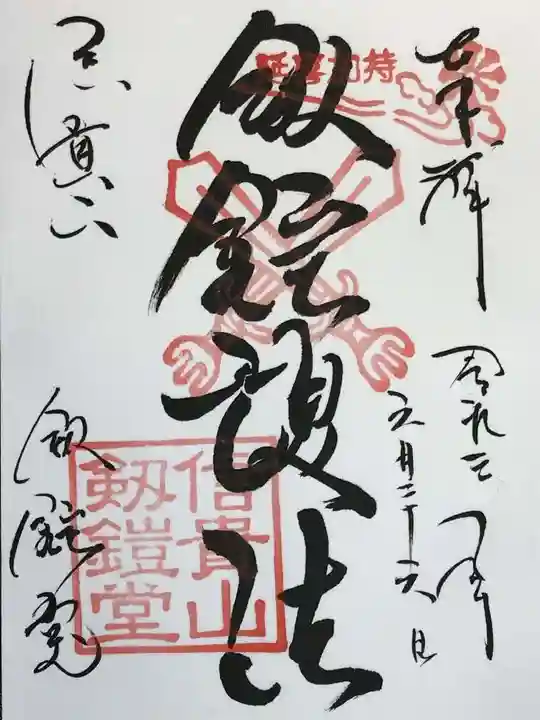 奉拝
令和三年
五月二十六日
延喜加持
剱鎧護法
信貴山
剱鎧堂
信貴山
剱鎧堂